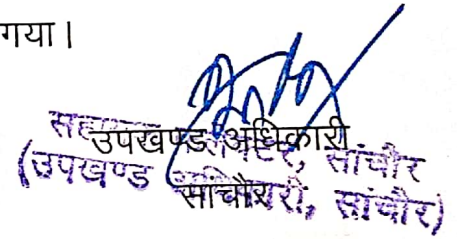 गया।
उपखण्ड अधिकारी
सांचौर
सहायक कलेक्टर, सांचौर
(उपखण्ड अधिकारी, सांचौर)